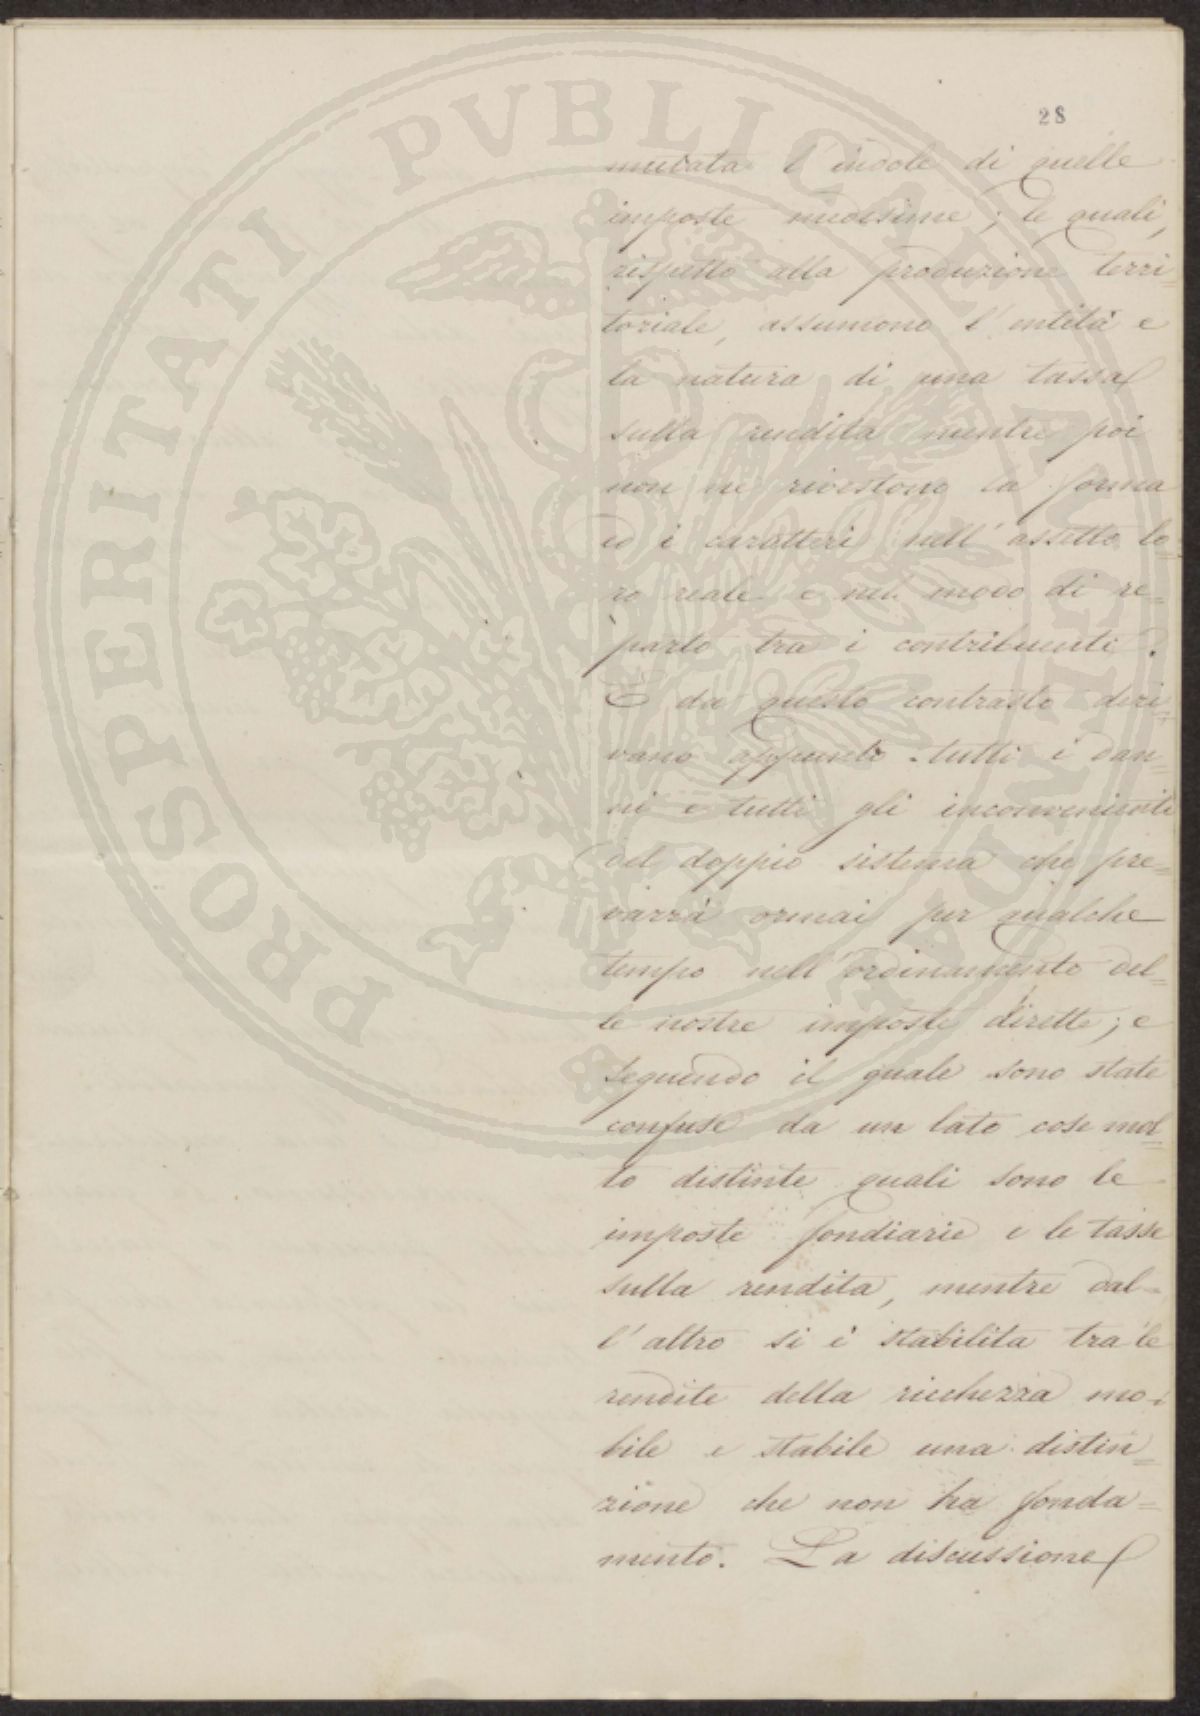 28
mutata l'indole di quelle
imposte medesime; le quali,
rispetto alla produzione terri=
toriale, assumono l'entità e
la natura di una tassa
sulla rendita mentre poi
non ne rivestono la forma
ed i caratteri nell'assetto lo=
ro reale e nel modo di re=
parto tra i contribuenti.
E da questo contrasto deri=
vano appunto tutti i dan=
ni e tutti gli inconvenienti
del doppio sistema che pre=
varrà ormai per qualche
tempo nell'ordinamento del=
le nostre imposte dirette; e
seguendo il quale sono state
confuse da un lato cose mol=
to distinte quali sono le
imposte fondiarie e le tasse
sulla rendita, mentre dal=
l'altro si è stabilita tra le
rendite della ricchezza mo=
bile e stabile una distin=
zione che non ha fonda=
mento. La discussione
PROSPERITATI PVBLICAE AVGENDAE